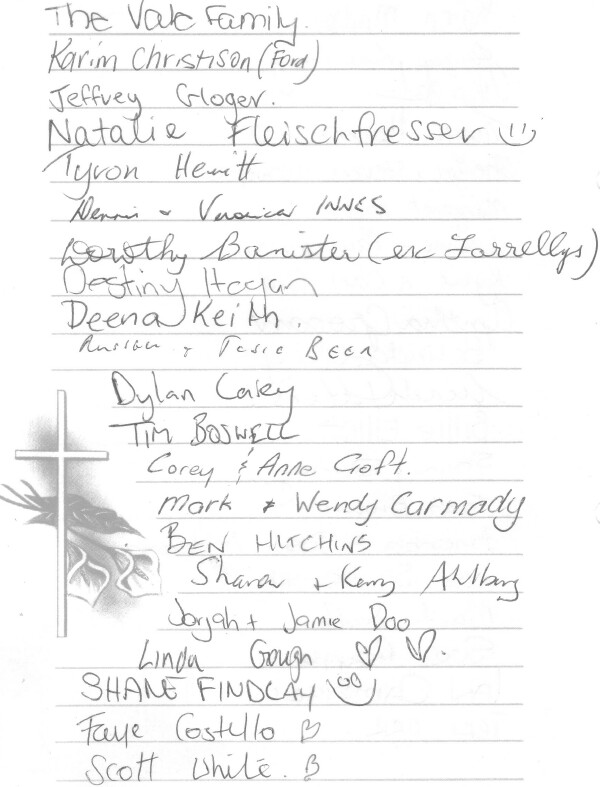 The Vale Family.
Karim Christison (Ford)
Jeffrey Gloger.
Natalie Fleischfresser
Tyron Hewitt
Dennis & Veronica INNES
Dorothy Banister (ex Farrellys)
Destiny Hogan
Deena Keith.
BEER
Dylan Caley
TIM BOSWELL
Corey & Anne Croft.
Mark & Wendy Carmady
BEN HUTCHINS
Sharon & Kerry Ahlberg
Jorjah + Jamie Doo
Linda Gough
SHANE FINDLAY
Faye Costello
Scott White.